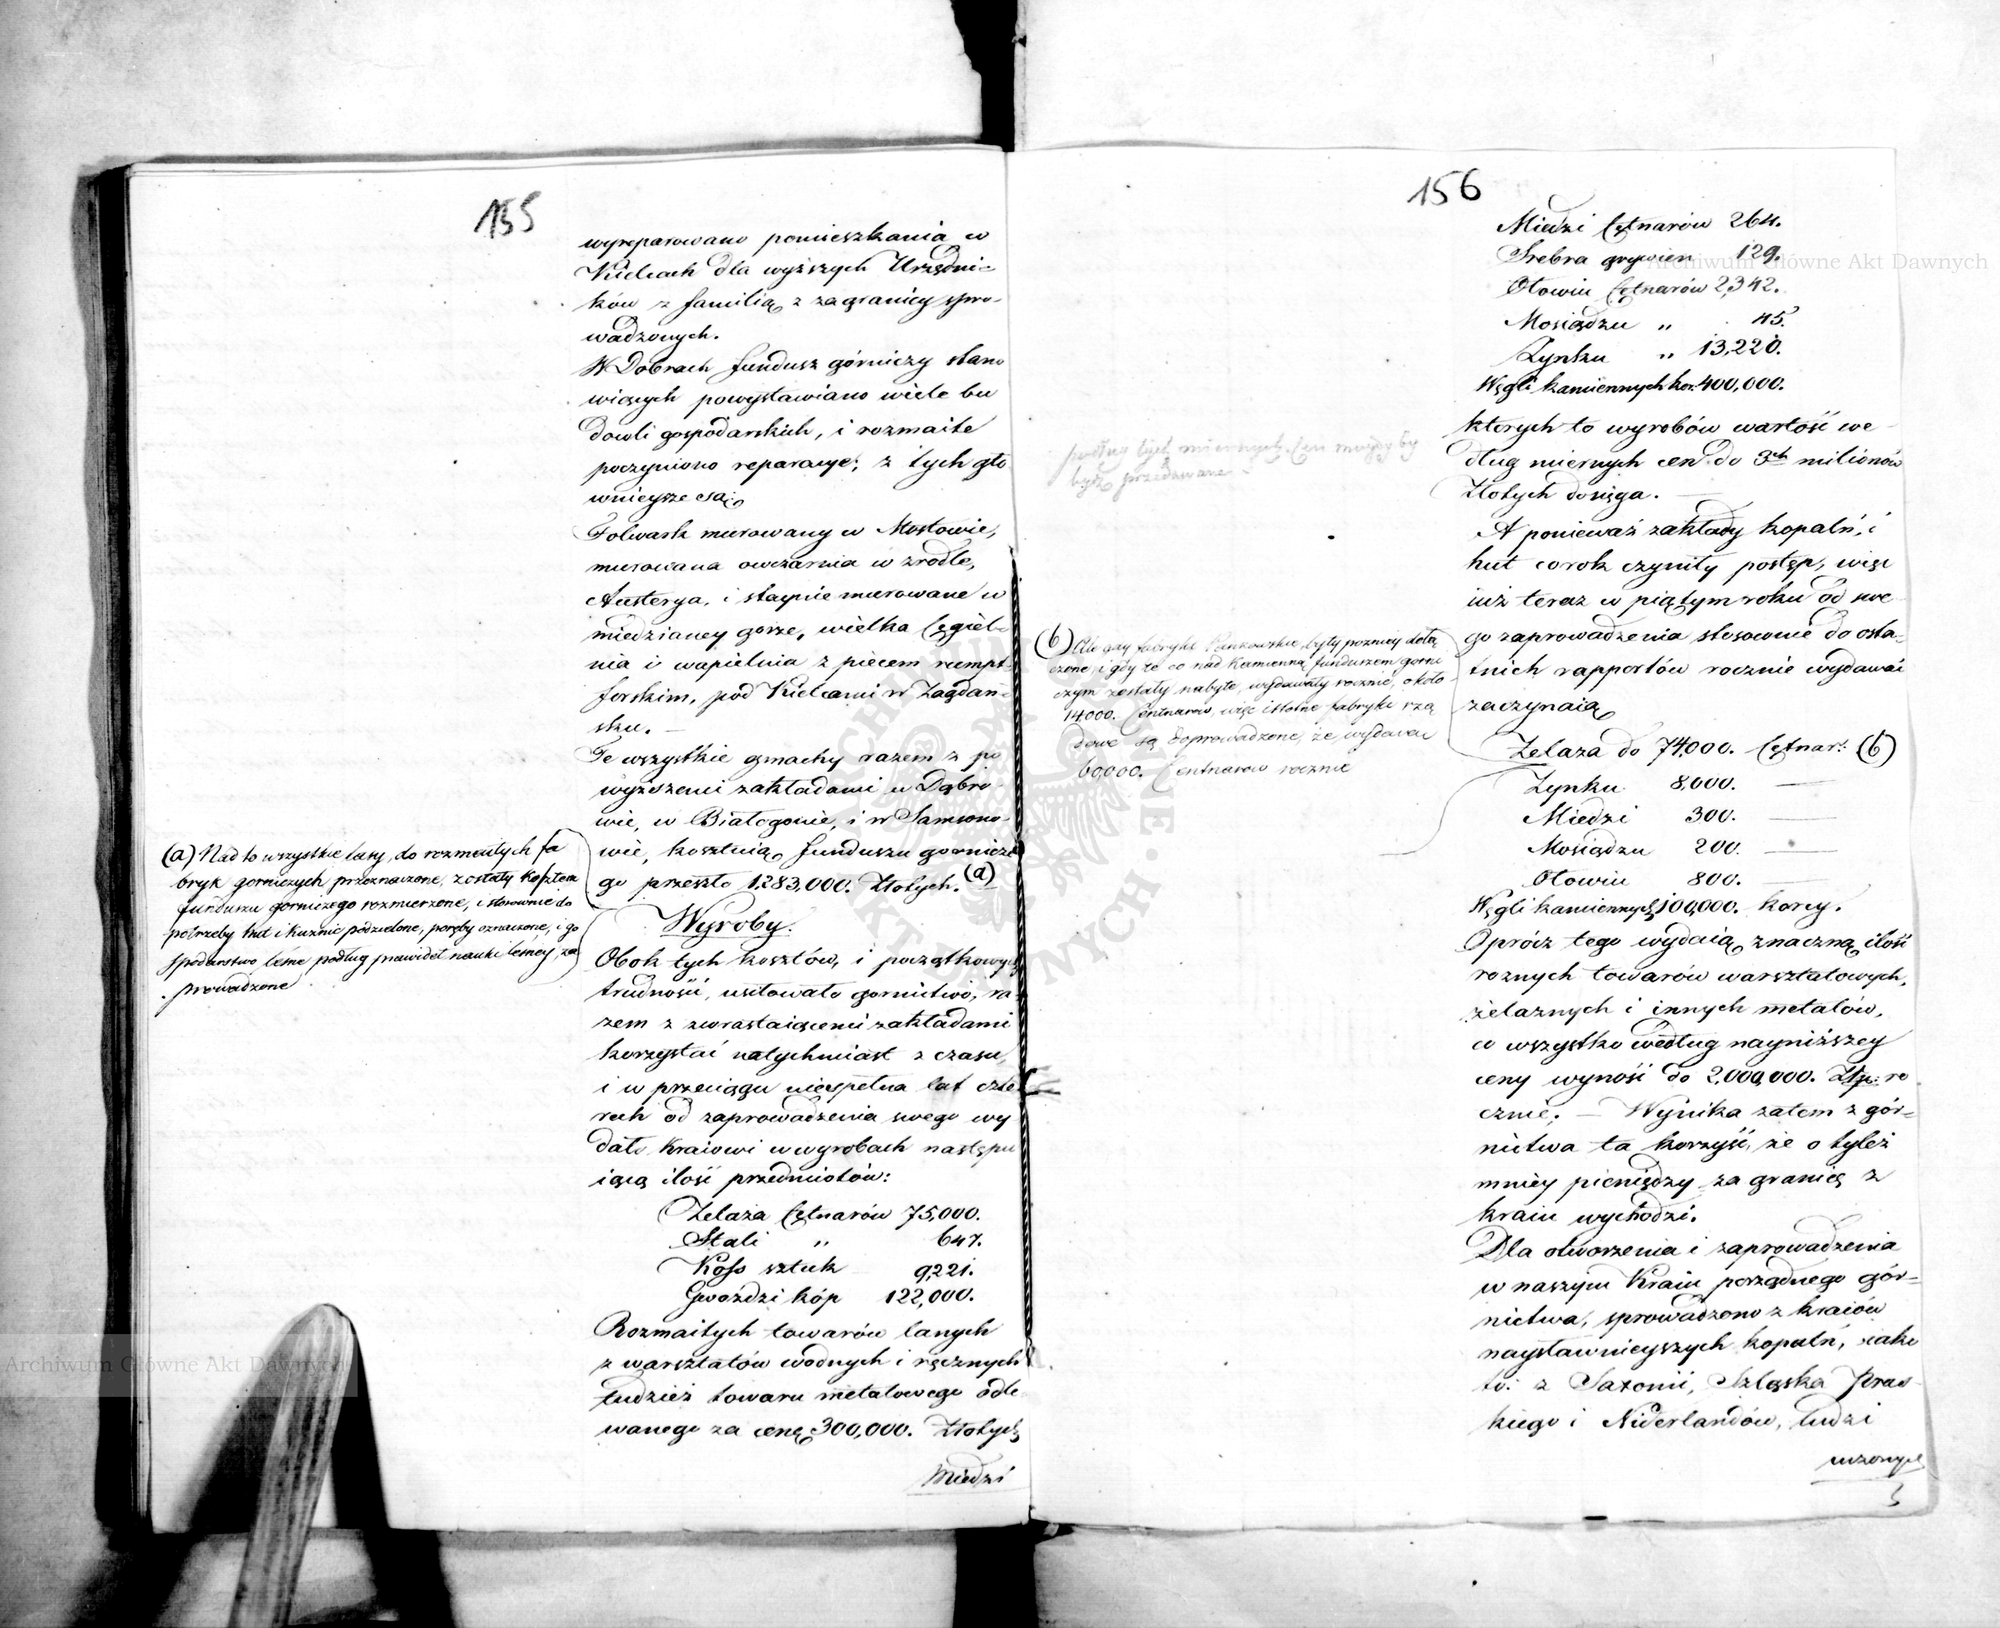 155
wyreparowano pomieszkania w
Kielcach dla wyższych Urzędni=
ków z familią z zagranicy spro-
wadzonych.
W Dobrach fundusz górniczy stano
wiących powystawiano wiele bu
dowli gospodarskich, i rozmaite
poczyniono reparacye; z tych głó
wnieysze są:
Folwark murowany w Mostowie,
murowana owczarnia w zrodle,
Austerya, i staynie murowane w
miedzianey gorze, wielka Cegiel-
nia i wapielnia z piecem rumpf-
fordskim, pod Kielcami w Zagdań-
sku. —
Te wszystkie gmachy razem z po
wyższemi zakładami w Dąbro-
wie, w Białogonie, i w Samsono-
wie, kosztuią funduszu gornicze
go przeszło 1,283,000. Złotych. (a)
(a) Nad to wszystkie lasy, do rozmaitych fa
bryk gorniczych przeznaczone, zostały kosztem
funduszu gorniczego rozmierzone, i stosownie do
potrzeby hut i kuznic podzielone, poręby oznaczone, i go
spodarstwo leśne podług prawideł nauki lesney, za
prowadzone
Wyroby.
Obok tych kosztów, i początkowych
trudności, usiłowało gornictwo, ra-
zem z zwrastaiącemi zakładami
korzystać natychmiast z czasu,
i w przeciągu niespełna lat czte
rech od zaprowadzenia swego wy
dało Kraiowi w wyrobach nastepu
iącą ilość przedmiotów:
Zelaza Cętnarów 75,000.
Stali " 647.
Koss sztuk 9,221.
Gwoździ kóp 122,000.
Rozmaitych towarów lanych
z warsztatów wodnych i ręcznych
tudzież towaru metalowego odle-
wanego za cenę 300,000. Złotych
Miedzi
156
Miedzi Cętnarów 264.
Srebra grzywien 129.
Ołowiu Cętnarów 2,342.
Mosiądzu " 45.
Zynku " 13,220.
Węgli kamiennych kor. 400,000.
których to wyrobów wartość we-
dług miernych cen do 3ch milionów
Złotych dosięga. —
podług tych miernych Cen mogły by
bydź przedawane
A ponieważ zakłady kopalń, i
hut corok czyniły postęp, więc
iuż teraz w piątym roku od swe
go zaprowadzenia stosownie do osta-
tnich rapportów rocznie wydawać
zaczynaią
(b) Ale gdy fabryki Pankowskie, były pozniey dołą
czone, i gdy te co nad Kamienną funduszem gorni
czym zostały nabyte, wydawały rocznie, około
14,000. Centnarow, więc istotne fabryki rzą
dowe są doprowadzone, że wydawać
60,000. Centnarow rocznie
Zelaza do 74,000. Cętnar: (b)
Zynku 8,000. —
Miedzi 300. —
Mosiądzu 200. —
Ołowiu 800. —
Węgli kamiennych 100,000. korcy.
Oprócz tego wydaią znaczną ilość
roznych towarów warsztatowych,
żelaznych i innych metalów,
co wszystko według nayniższey
ceny wynosi do 2,000,000. Złp: ro
cznie. — Wynika zatem z gór=
nictwa ta korzyść, że o tyleż
mniey pieniędzy za granicę z
kraiu wychodzi.
Dla otworzenia i zaprowadzenia
w naszym Kraiu porządnego gór=
nictwa, sprowadzono z kraiów
naysławnieyszych kopalń, iako
to: z Saxonii, Szląska Prus-
kiego i Niderlandów, ludzi
uczonych
Archiwum Główne Akt Dawnych
Archiwum Główne Akt Dawnych